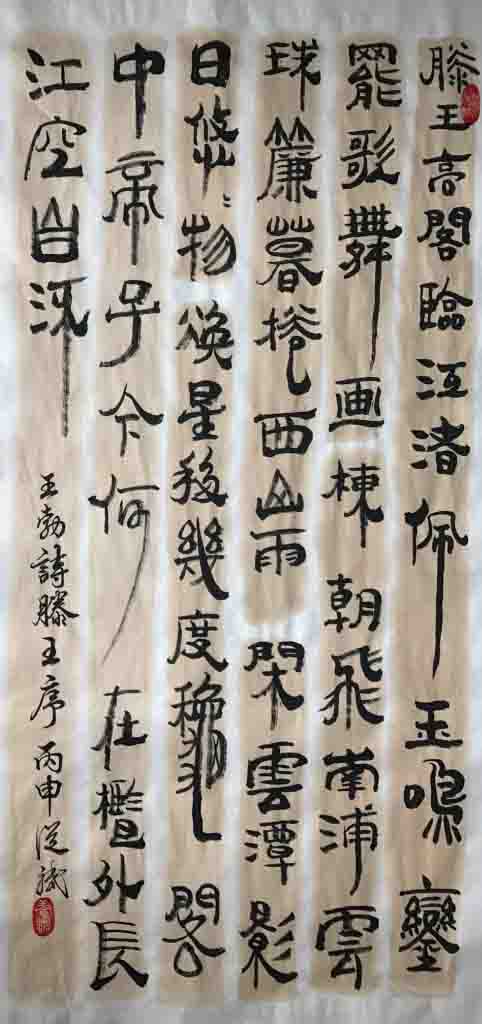 滕王高閣臨江渚佩玉鳴鑾
罷歌舞画棟朝飛南浦雲
珠簾暮捲西山雨閑雲潭影
日悠々物換星移幾度穐閣
中帝子今何在檻外長
江空自流
王勃詩滕王序丙申從斌